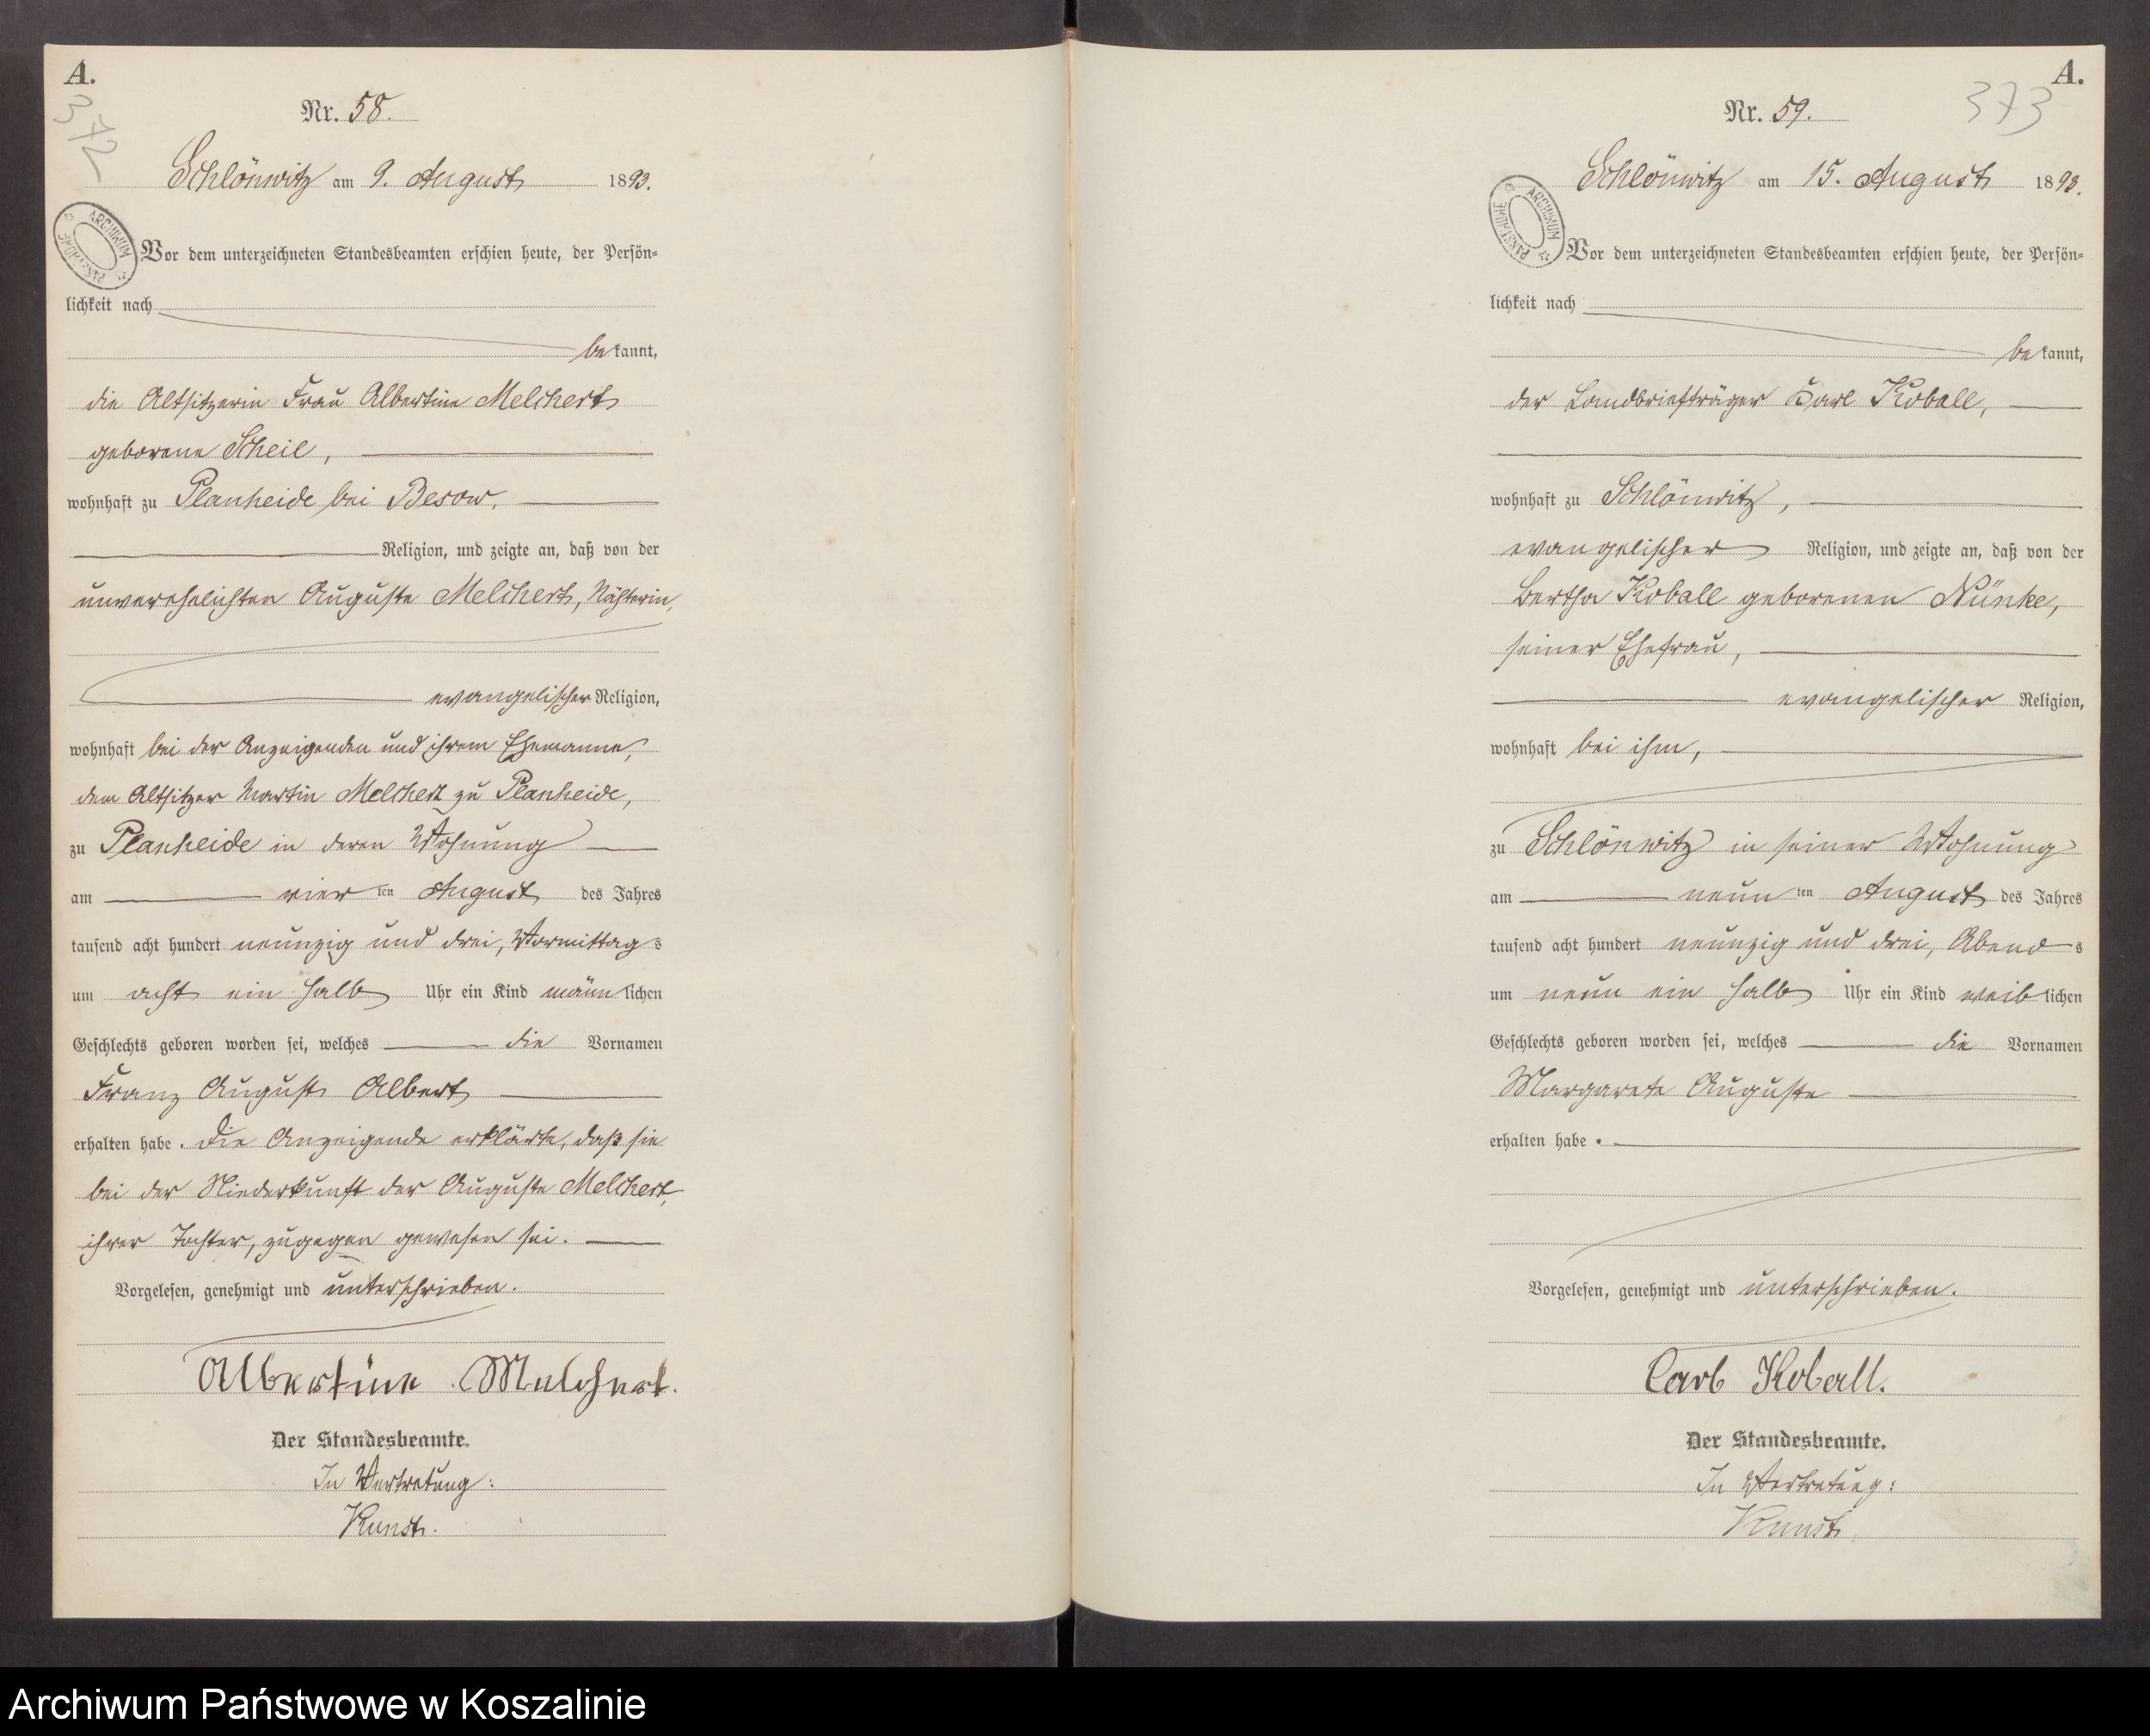 A.
372
Nr. 58.
Schlönwitz am 9. August 1893.
ARCHIWUM PAŃSTWOWE
Vor dem unterzeichneten Standesbeamten erschien heute, der Persön=
lichkeit nach
bekannt,
die Altsitzerin Frau Albertine Melchert
geborene Scheil,
wohnhaft zu Planheide bei Besow,
Religion, und zeigte an, daß von der
unverehelichten Auguste Melchert, Nähterin,
evangelischer Religion,
wohnhaft bei der Anzeigenden und ihrem Ehemanne,
dem Altsitzer Martin Melchert zu Planheide,
zu Planheide in deren Wohnung
am vierten August des Jahres
tausend acht hundert neunzig und drei, Vormittags
um acht ein halb Uhr ein Kind männlichen
Geschlechts geboren worden sei, welches die Vornamen
Franz August Albert
erhalten habe. Die Anzeigende erklärte, daß sie
bei der Niederkunft der Auguste Melchert,
ihrer Tochter, zugegen gewesen sei.
Vorgelesen, genehmigt und unterschrieben.
Albertine Melchert.
Der Standesbeamte.
In Vertretung:
Kunst.
A.
373
Nr. 59.
Schlönwitz am 15. August 1893.
ARCHIWUM PAŃSTWOWE
Vor dem unterzeichneten Standesbeamten erschien heute, der Persön=
lichkeit nach
bekannt,
der Landbriefträger Karl Koball,
wohnhaft zu Schlönwitz,
evangelischer Religion, und zeigte an, daß von der
Bertha Koball geborenen Nünke,
seiner Ehefrau,
evangelischer Religion,
wohnhaft bei ihm,
zu Schlönwitz in seiner Wohnung
am neunten August des Jahres
tausend acht hundert neunzig und drei, Abends
um neun ein halb Uhr ein Kind weiblichen
Geschlechts geboren worden sei, welches die Vornamen
Margarete Auguste
erhalten habe.
Vorgelesen, genehmigt und unterschrieben.
Carl Koball.
Der Standesbeamte.
In Vertretung:
Kunst
Archiwum Państwowe w Koszalinie